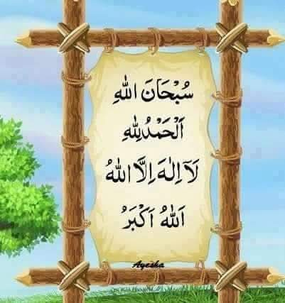 سُبْحَانَ اللهِ
اَلْحَمْدُلِلّٰهِ
لَآ اِلٰهَ اِلَّا اللهُ
اَللهُ اَكْبَرُ
Ayesha